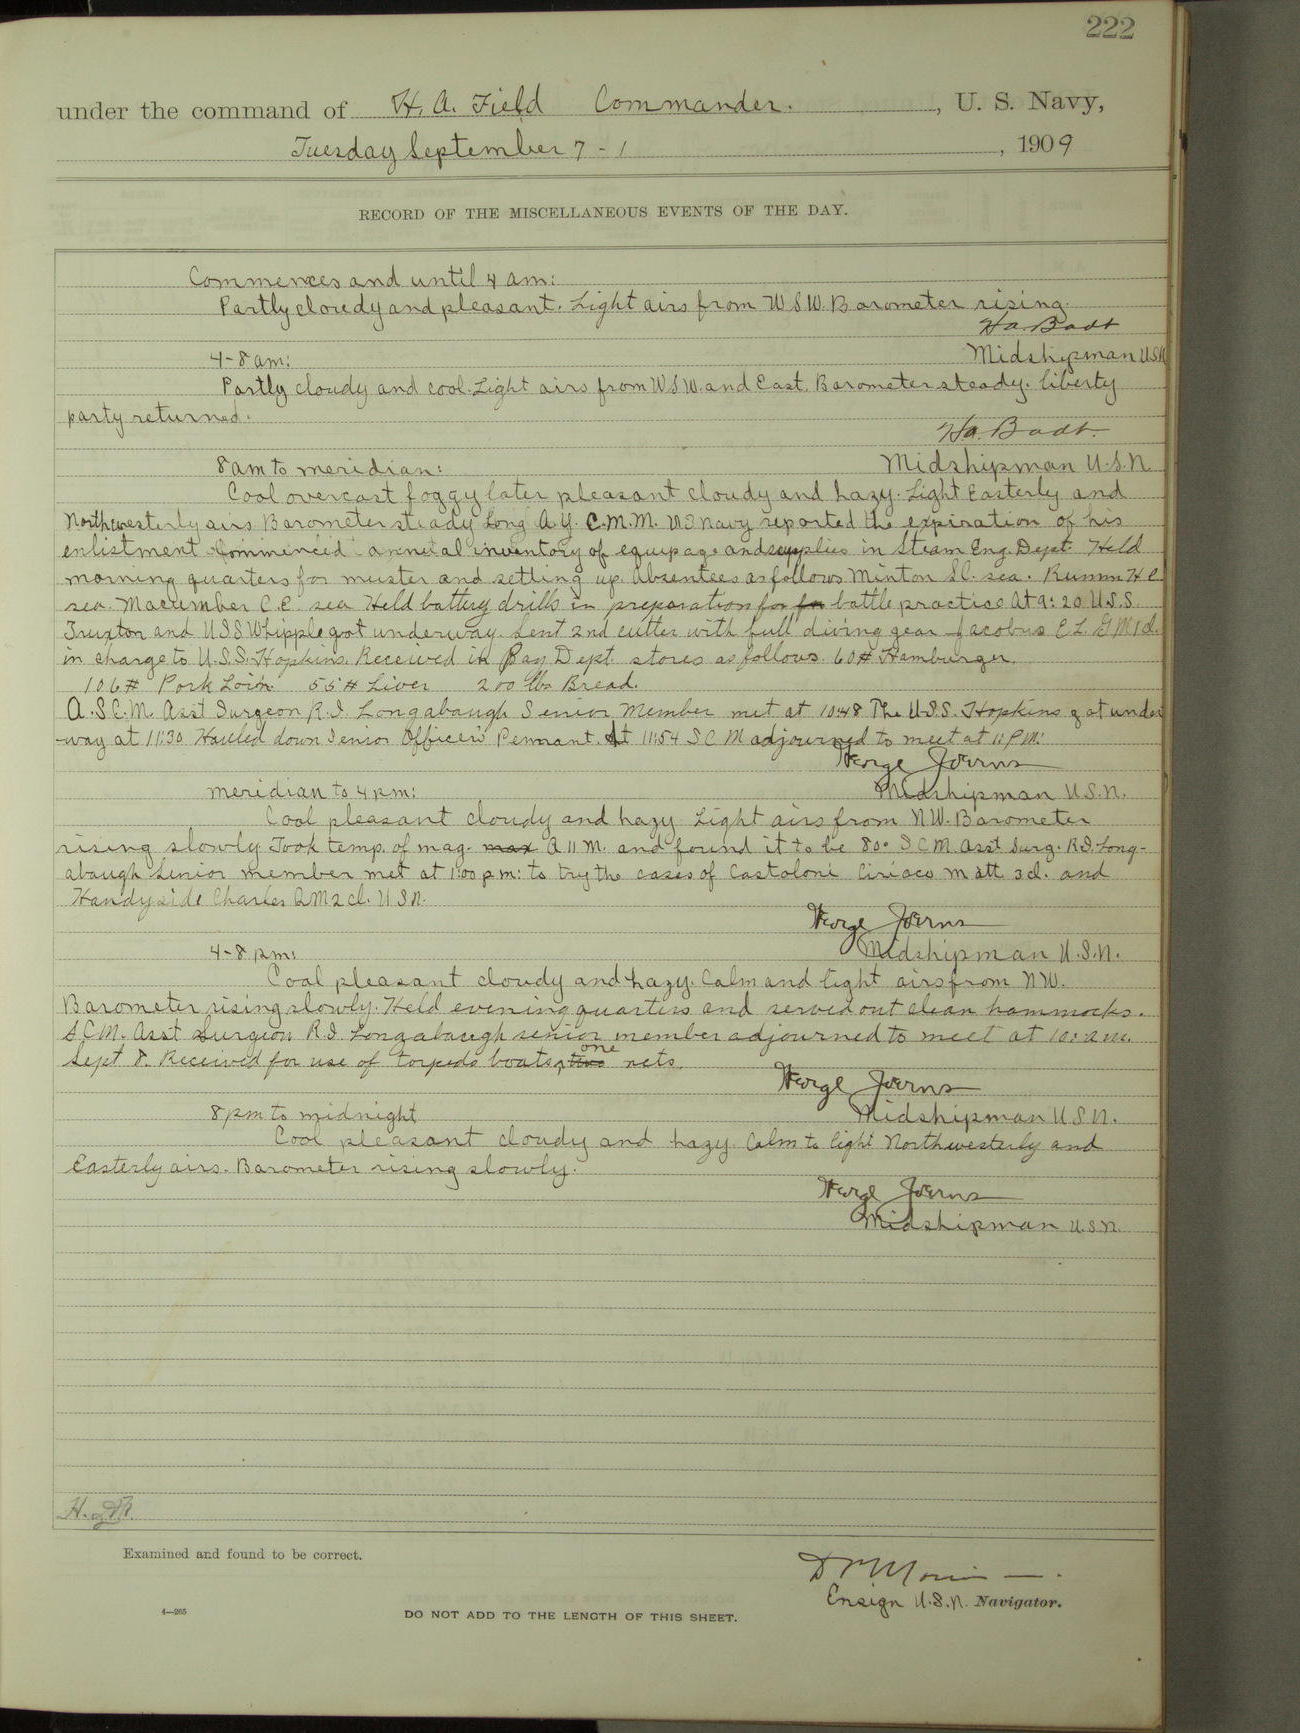 222
under the command of H. A. Field Commander. , U. S. Navy,
Tuesday September 7 - 1 , 1909
RECORD OF THE MISCELLANEOUS EVENTS OF THE DAY.
Commences and until 4 am:
Partly cloudy and pleasant. Light airs from WSW. Barometer rising.
Ha. Badt
4-8 am:
Midshipman USN
Partly cloudy and cool. Light airs from WSW. and East. Barometer steady. liberty
party returned.
Ha. Badt.
8 am to meridian:
Midshipman U.S.N.
Cool overcast foggy later pleasant cloudy and hazy. Light Easterly and
Northwesterly airs Barometer steady Long A.Y. C.M.M. US Navy reported the expiration of his
enlistment Commenced annual inventory of equipage and supplies in Steam Eng. Dept. Held
morning quarters for muster and setting up. Absentees as follows Minton Sl. sea.
sea. Macumber C.E. sea Held battery drills in preparation for for battle practice At 9:20 U.S.S.
Truxton and USS Whipple got underway. Sent 2nd cutter with full diving gear Jacobus C.L. G.M 1cl.
in charge to U.S.S. Hopkins. Received in Pay Dept. stores as follows. 60# Hamburger
106# Pork Loin 55# Liver 200 lbs Bread.
A. S.C.M. Asst Surgeon R.I. Longabaugh Senior Member met at 10:48 The U.S.S. Hopkins got under
-way at 11:30 Hauled down Senior Officer's Pennant. At 11:54 S C M adjourned to meet at 1: P.M:
George Joerns
meridian to 4 pm:
Midshipman U.S.N.
Cool pleasant cloudy and hazy Light airs from NW. Barometer
rising slowly Took temp. of mag. max A 11 M. and found it to be 80° S C M. Asst Surg. R.I. Long-
abaugh Senior member met at 1:00 pm: to try the cases of Castoloni Ciriaco M att 3cl. and
Handyside Charles Q M 2 cl. U S N.
George Joerns
4-8 pm:
Midshipman U.S.N.
Cool pleasant cloudy and hazy. Calm and light airs from NW.
Barometer rising slowly. Held evening quarters and served out clean hammocks.
S.C.M. Asst Surgeon R.I. Longabaugh senior member adjourned to meet at 10: a.m.
Sept 8. Received for use of torpedo boats, two one nets.
George Joerns
8 pm to midnight
Midshipman U S N.
Cool pleasant cloudy and hazy. Calm to light Northwesterly and
Easterly airs. Barometer rising slowly.
George Joerns
Midshipman U.S.N.
Examined and found to be correct.
Ensign U.S.N. Navigator.
4—265
DO NOT ADD TO THE LENGTH OF THIS SHEET.